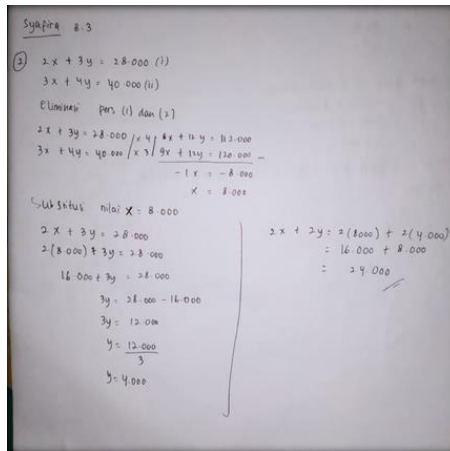 Syafira 8.3
② 2x + 3y = 28.000 (i)
3x + 4y = 40.000 (ii)
Eliminasi pers (1) dan (2)
2x + 3y = 28.000 | x 4 | 8x + 12y = 112.000
3x + 4y = 40.000 | x 3 | 9x + 12y = 120.000 -
-1x = -8.000
x = 8.000
Substitusi nilai x = 8.000
2x + 3y = 28.000
2(8.000) + 3y = 28.000
16.000 + 3y = 28.000
3y = 28.000 - 16.000
3y = 12.000
y = 12.000
3
y = 4.000
2x + 2y = 2(8000) + 2(4.000)
= 16.000 + 8.000
= 24.000